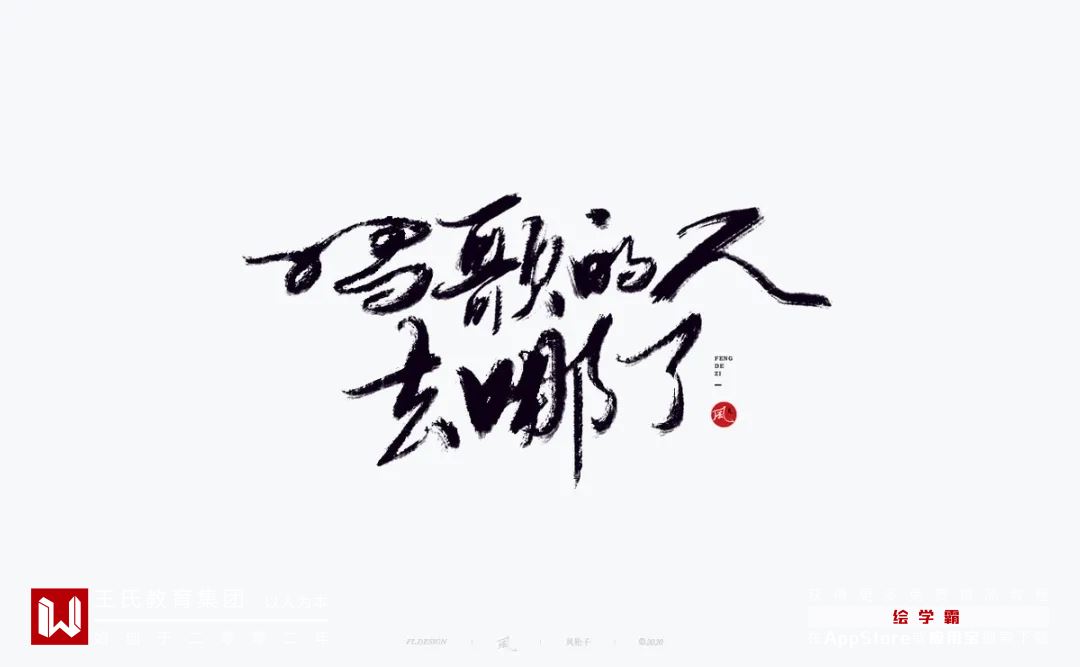 唱歌的人
去哪了
FENG
DE
ZI
風
王氏教育集团 以人为本
始创于二零零二年
FL.DESIGN 風 风轮子 ©2020
获得更多免费精品教程
绘学霸
在AppStore或应用宝搜索下载